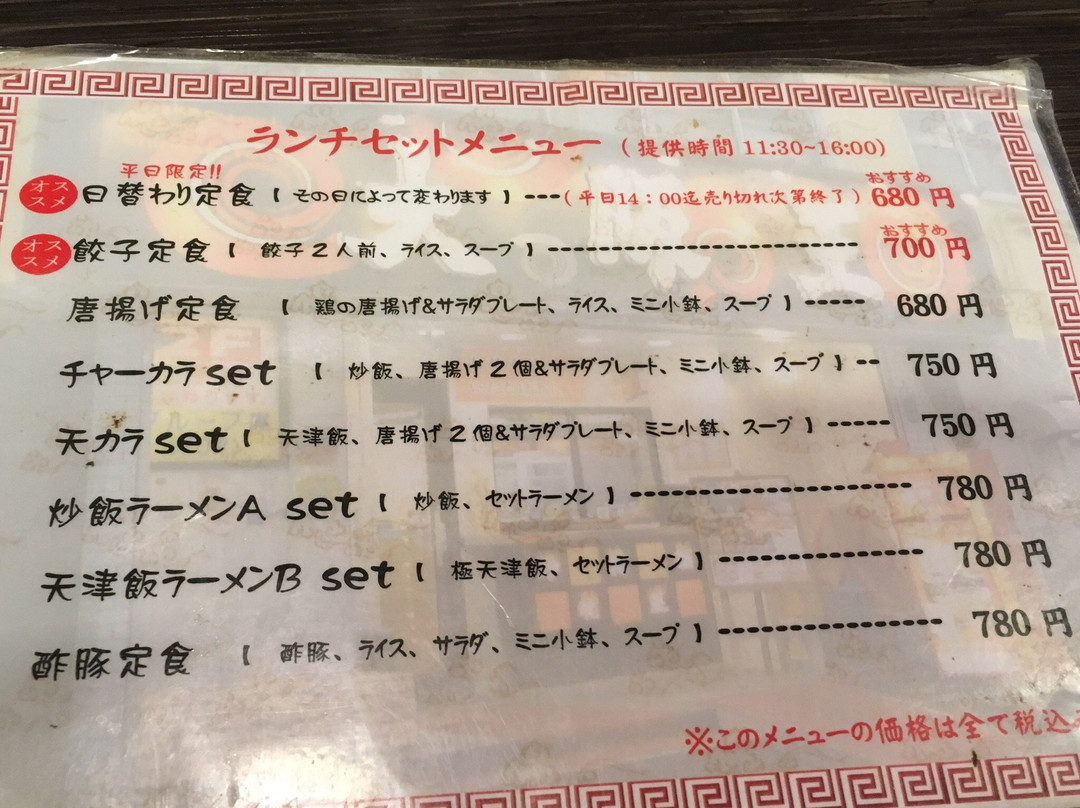 ランチセットメニュー (提供時間 11:30~16:00)
平日限定!! おすすめ
オススメ 日替わり定食 【 その日によって変わります 】 ---(平日14：00迄売り切れ次第終了) 680 円
おすすめ
オススメ 餃子定食 【 餃子2人前、ライス、スープ 】 ---------------------------- 700 円
唐揚げ定食 【 鶏の唐揚げ&サラダプレート、ライス、ミニ小鉢、スープ 】 ----- 680 円
チャーカラset 【 炒飯、唐揚げ2個&サラダプレート、ミニ小鉢、スープ 】 -- 750 円
天カラset 【 天津飯、唐揚げ2個&サラダプレート、ミニ小鉢、スープ 】 ----- 750 円
炒飯ラーメンA set 【 炒飯、セットラーメン 】 ---------------------- 780 円
天津飯ラーメンB set 【 極天津飯、セットラーメン 】 --------------- 780 円
酢豚定食 【 酢豚、ライス、サラダ、ミニ小鉢、スープ 】 ---------------- 780 円
※このメニューの価格は全て税込